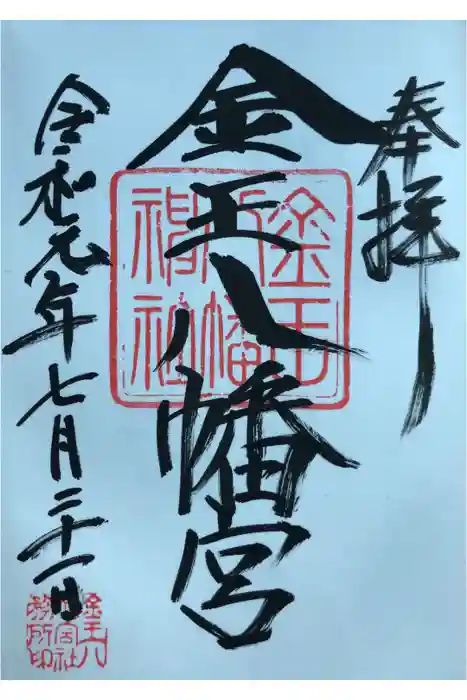 奉拝
金王八幡宮
金王
八幡
神社
令和元年七月二十一日
金王八
幡宮社
務所印